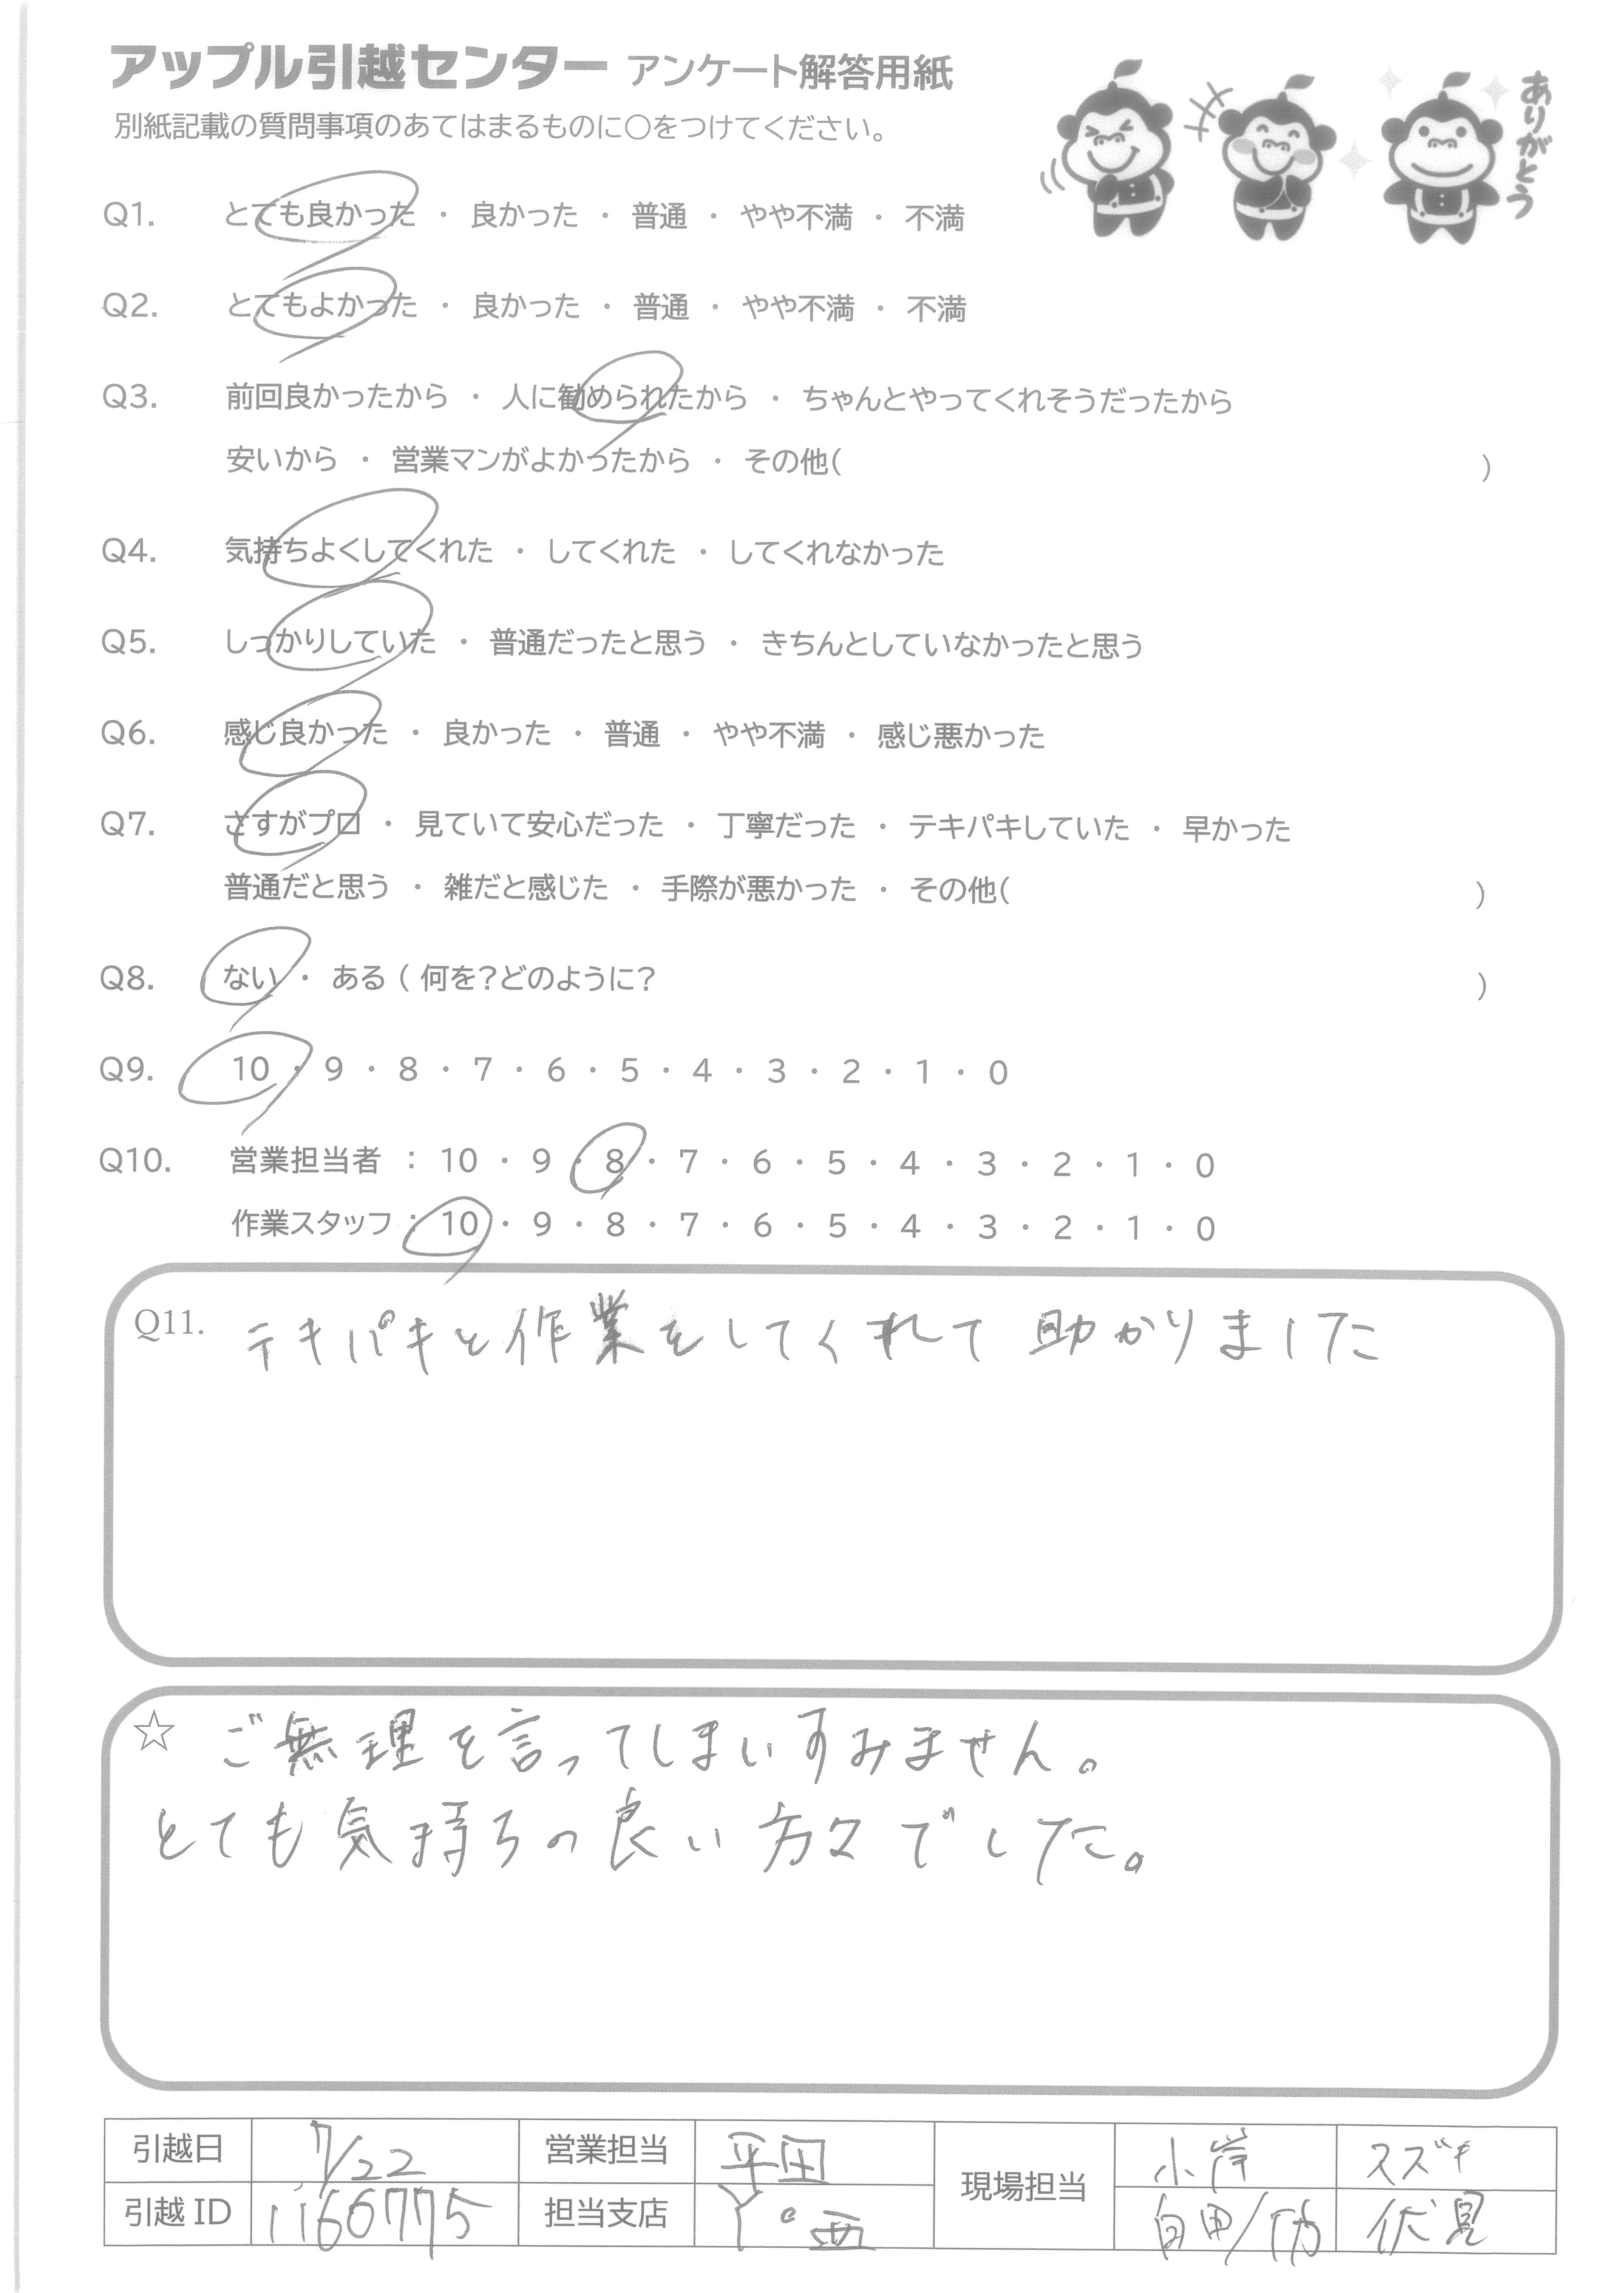 アップル引越センター アンケート解答用紙
別紙記載の質問事項のあてはまるものに○をつけてください。
ありがとう
Q1. とても良かった ・ 良かった ・ 普通 ・ やや不満 ・ 不満
Q2. とてもよかった ・ 良かった ・ 普通 ・ やや不満 ・ 不満
Q3. 前回良かったから ・ 人に勧められたから ・ ちゃんとやってくれそうだったから
安いから ・ 営業マンがよかったから ・ その他( )
Q4. 気持ちよくしてくれた ・ してくれた ・ してくれなかった
Q5. しっかりしていた ・ 普通だったと思う ・ きちんとしていなかったと思う
Q6. 感じ良かった ・ 良かった ・ 普通 ・ やや不満 ・ 感じ悪かった
Q7. さすがプロ ・ 見ていて安心だった ・ 丁寧だった ・ テキパキしていた ・ 早かった
普通だと思う ・ 雑だと感じた ・ 手際が悪かった ・ その他( )
Q8. ない ・ ある ( 何を?どのように? )
Q9. 10 ・ 9 ・ 8 ・ 7 ・ 6 ・ 5 ・ 4 ・ 3 ・ 2 ・ 1 ・ 0
Q10. 営業担当者 : 10 ・ 9 ・ 8 ・ 7 ・ 6 ・ 5 ・ 4 ・ 3 ・ 2 ・ 1 ・ 0
作業スタッフ : 10 ・ 9 ・ 8 ・ 7 ・ 6 ・ 5 ・ 4 ・ 3 ・ 2 ・ 1 ・ 0
Q11. テキパキと作業をしてくれて 助かりました
☆ ご無理を言ってしまいすみません。
とても気持ちの良い方々でした。
引越日 7/22 営業担当 平田 現場担当 小岸 スズキ
引越 ID 1160775 担当支店 伏見